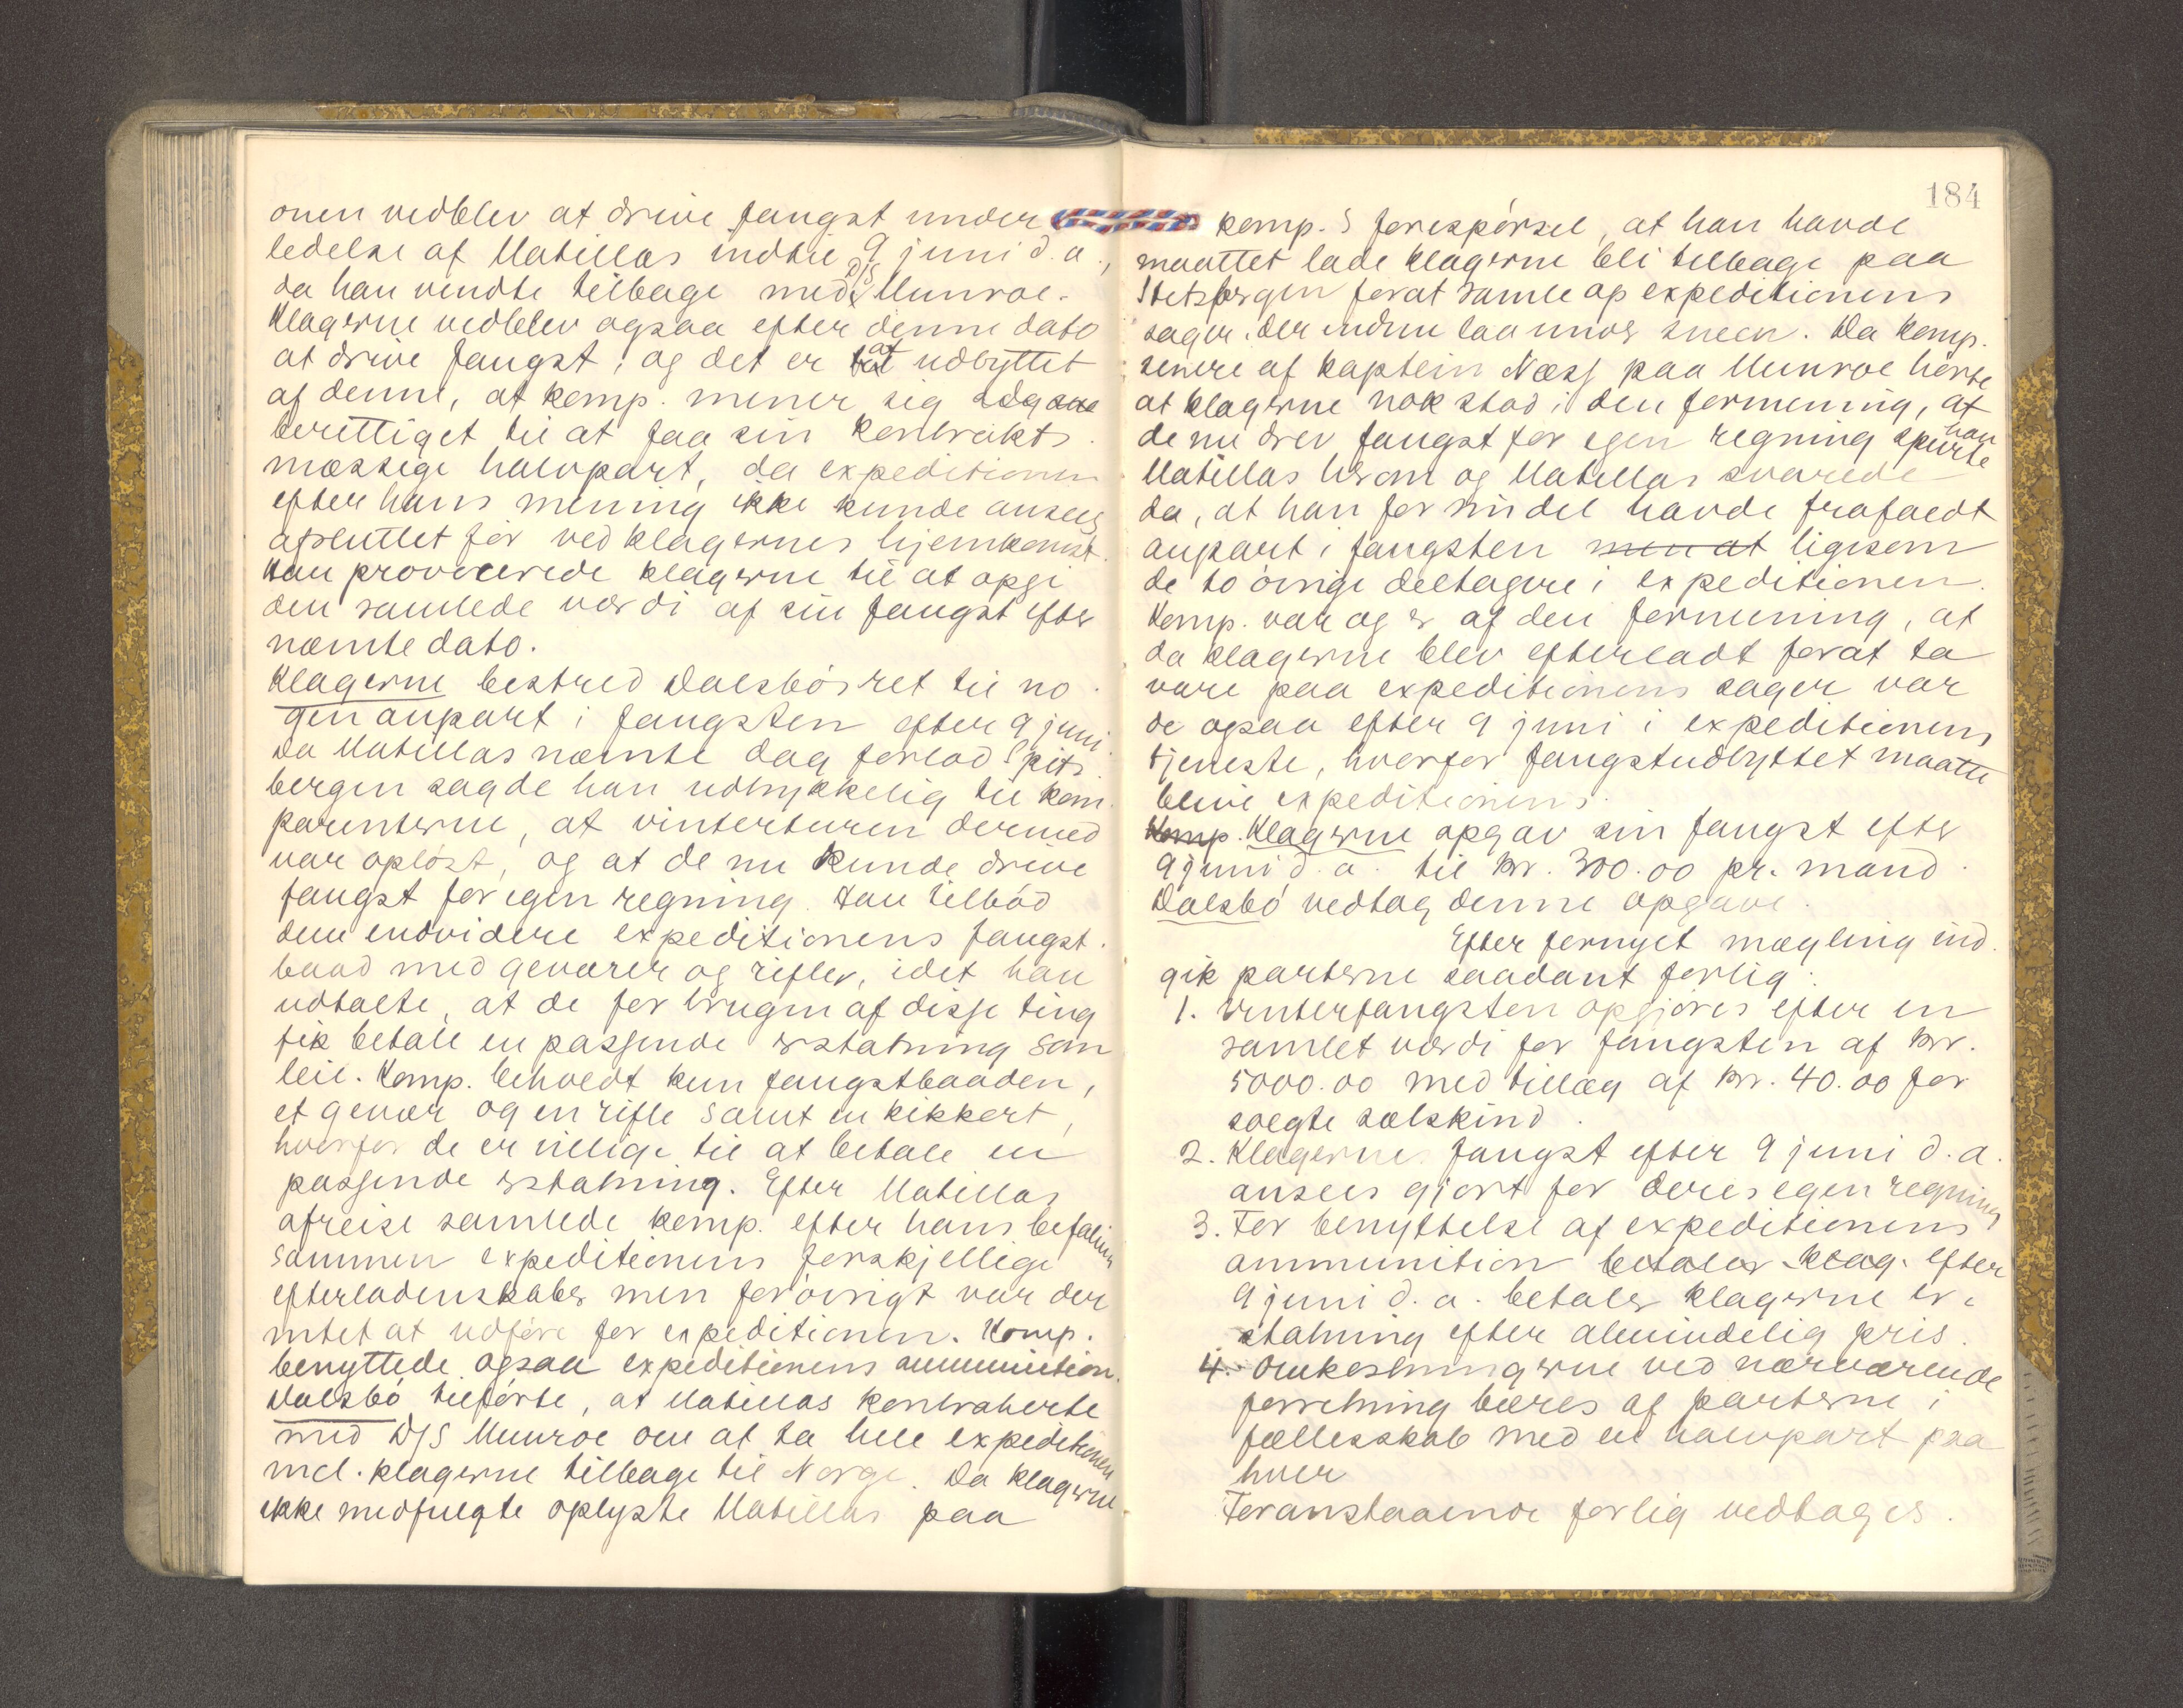 onen vedblev at drive fangst under
ledelse af Matillas indtil 9 juni d. a.,
da han vendte tilbage med D/S Munroe.
Klagerne vedblev ogsaa efter denne dato
at drive fangst, og det er at udbyttet
af denne, at komp. mener sig
berettiget til at faa sin kontrakts-
mæssige halvpart, da expeditionen
efter hans mening ikke kunde ansees
afsluttet før ved klagernes hjemkomst.
Han provocerede klagerne til at opgi
den samlede værdi af sin fangst efter
nævnte dato.
Klagerne bestred Dalsbøs ret til no-
gen anpart i fangsten efter 9 juni.
Da Matillas nævnte dag forlod Spits-
bergen sagde han udtrykkelig til kom-
parenterne, at vinterturen dermed
var opløst, og at de nu kunde drive
fangst for egen regning. Han tilbød
dem endvidere expeditionens fangst-
baad med geværer og rifler, idet han
udtalte, at de for brugen af disse ting
fik betale en passende erstatning som
leie. Komp. beholdt kun fangstbaaden,
et gevær og en rifle samt en kikkert,
hvorfor de er villige til at betale en
passende erstatning. Efter Matillas
afreise samlede komp. efter hans befaling
sammen expeditionens forskjellige
efterladenskaber men forøvrigt var der
intet at udføre for expeditionen. Komp.
benyttede ogsaa expeditionens ammunition.
Dalsbø tilførte, at Matillas kontraherte
med D/S Munroe om at ta hele expeditionen
incl. klagerne tilbage til Norge. Da klagerne
ikke medfulgte oplyste Matillas paa
184
komp.s forespørsel, at han havde
maattet lade klagerne bli tilbage paa
Spetsbergen forat samle op expeditionens
sager, der endnu laa under sneen. Da komp.
senere af kaptein Næss paa Munroe hørte
at klagerne nok stod i den formening, at
de nu drev fangst for egen regning spurte han
Matillas herom og Matillas svarede
da, at han for sin del havde frafaldt
anpart i fangsten men at ligesom
de to øvrige deltagere i expeditionen.
Komp. var og er af den formening, at
da klagerne blev efterladt forat ta
vare paa expeditionens sager var
de ogsaa efter 9 juni i expeditionens
tjeneste, hvorfor fangstudbyttet maatte
blive expeditionens.
Komp. Klagerne opgav sin fangst efter
9 juni d. a. til kr. 300.00 pr. mand.
Dalsbø vedtog denne opgave.
Efter fornyet mægling ind-
gik parterne saadant forlig:
1. Vinterfangsten opgjøres efter en
samlet værdi for fangsten af kr.
5000.00 med tillæg af kr. 40.00 for
solgte sælskind.
2. Klagernes fangst efter 9 juni d. a.
ansees gjort for deres egen regning
3. For benyttelse af expeditionens
ammunition betaler klag. efter
9 juni d. a. betaler klagerne er-
statning efter almindelig pris.
4. Omkostningerne ved nærværende
forretning bæres af parterne i
fællesskab med en halvpart paa
hver
Foranstaaende forlig vedtages.